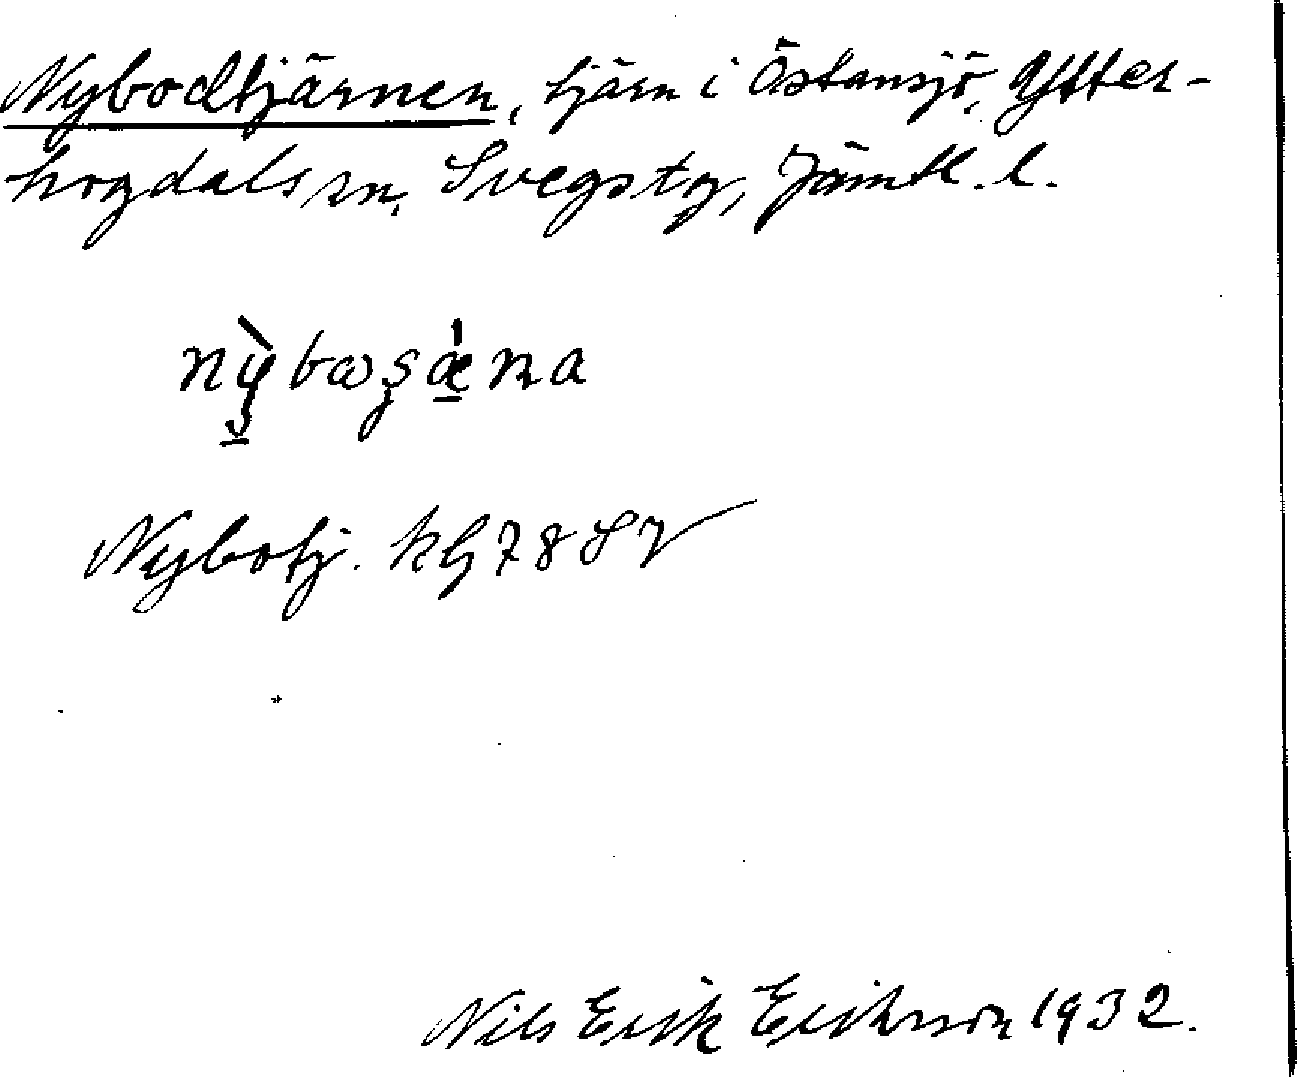 Nybodtjärnen, tjärn i Östansjö, Ytter-
hogdals sn, Svegs tg, Jämtl. l.
nỳbωʂæ̀na
Nybotj. kbl 78 SV
Nils Erik Eriksson 1932.